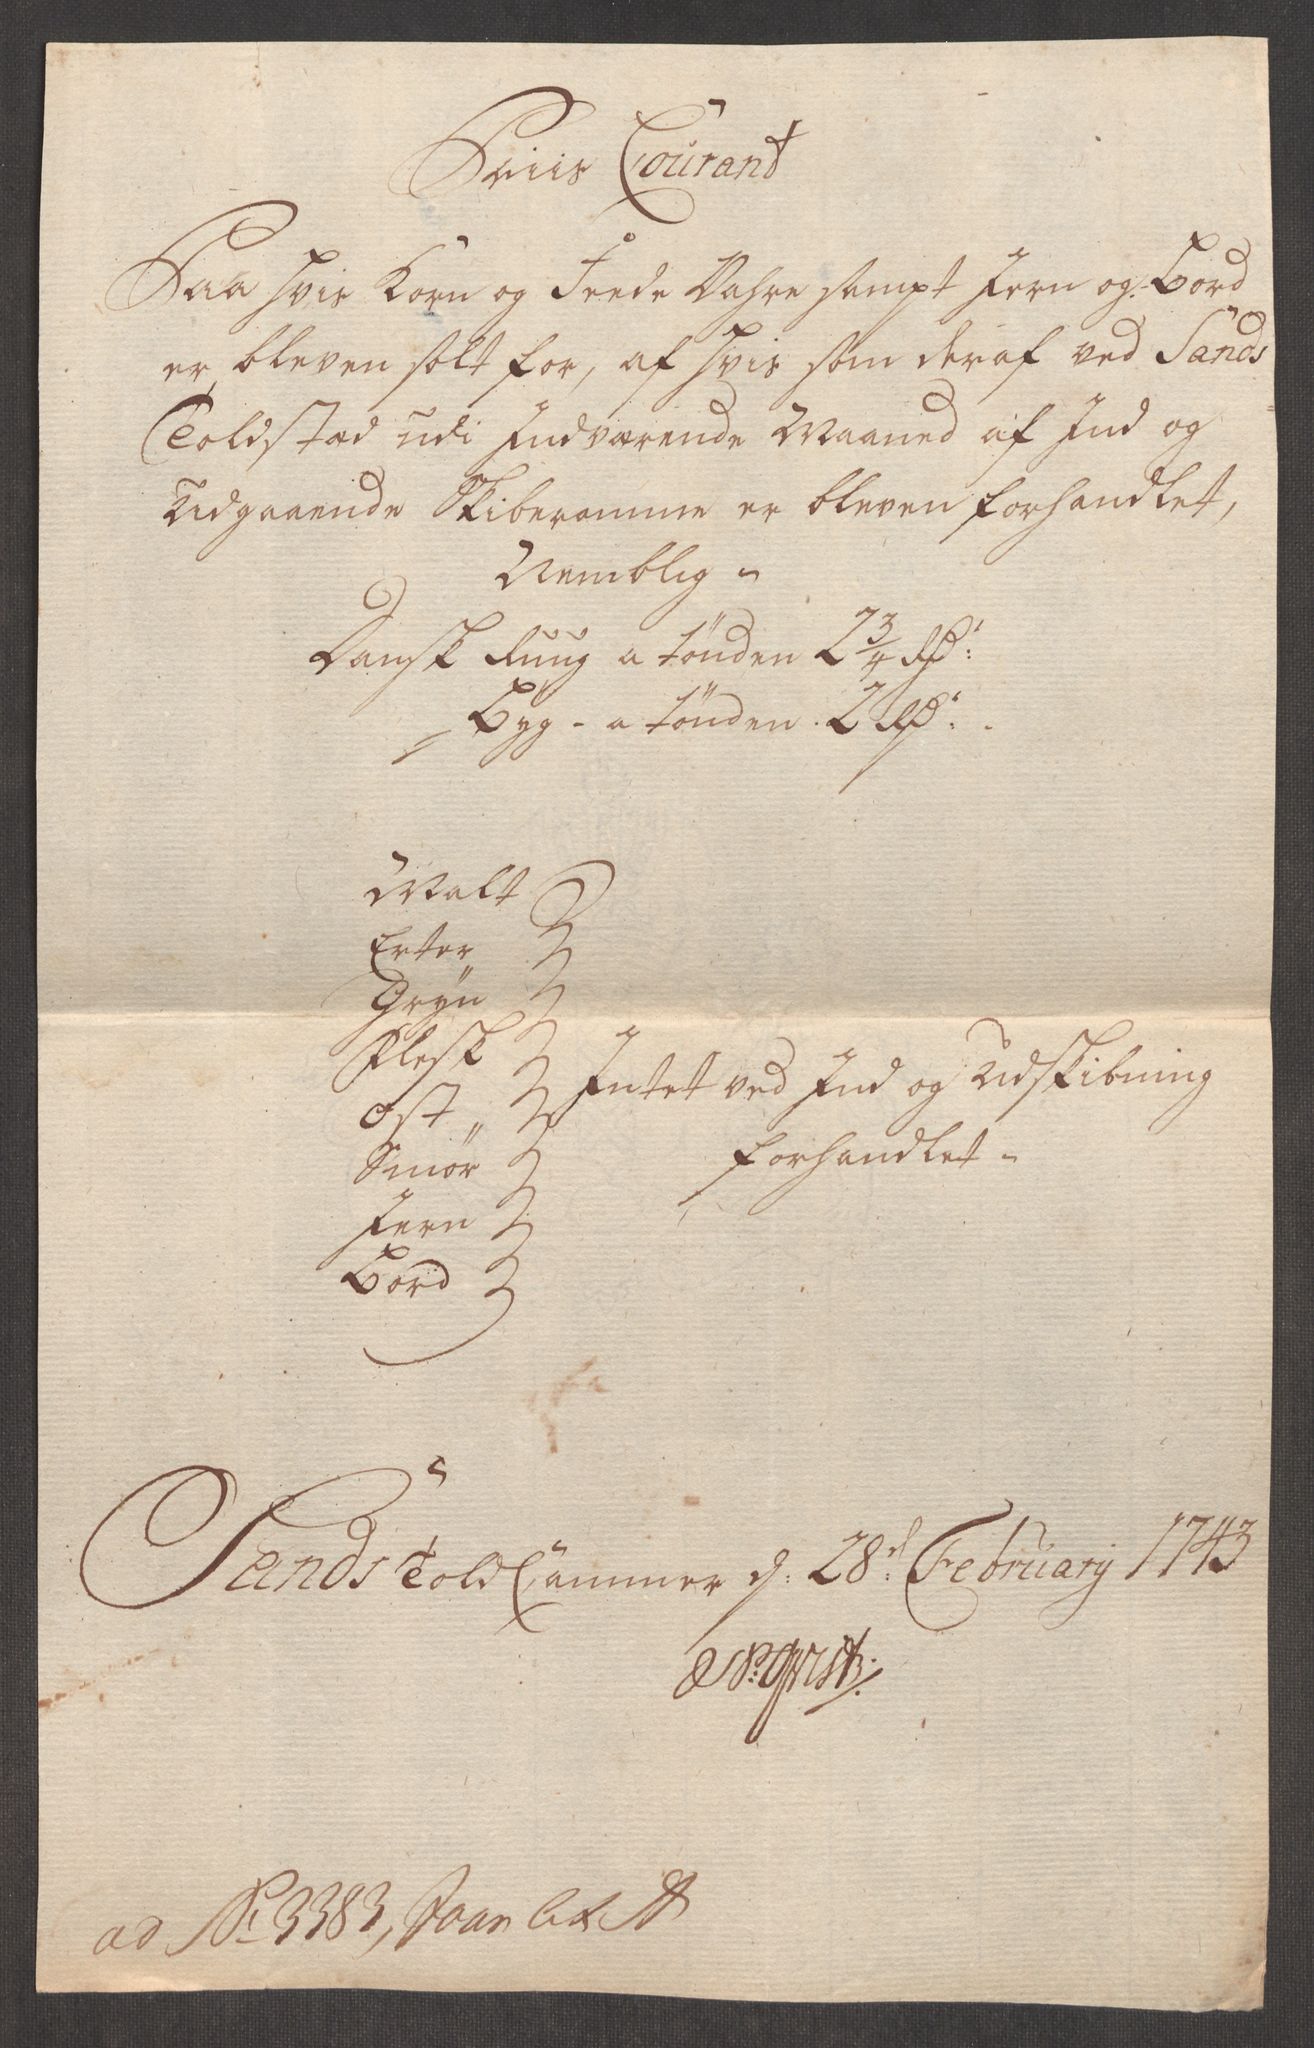 Priis Courant
Paa hvis Korn og Feede Vahre sampt Jern og Bord
er bleven solt for, af hvis som deraf ved Sands
Toldstæd udi Indværende Maaned af Ind og
Udgaaende Skiberomme er bleven forhandlet,
Nemblig
Dansk Ruug a tønden 2 3/4 Rd:
Byg - a tønden 2 Rd:
Malt
Erter
Gryn
Flesk
Intet ved Ind og Udskibning
Ost
forhandlet
Smør
Jern
Bord
Sands Told Cammer d: 28d: February 1743
ad No: 3383,